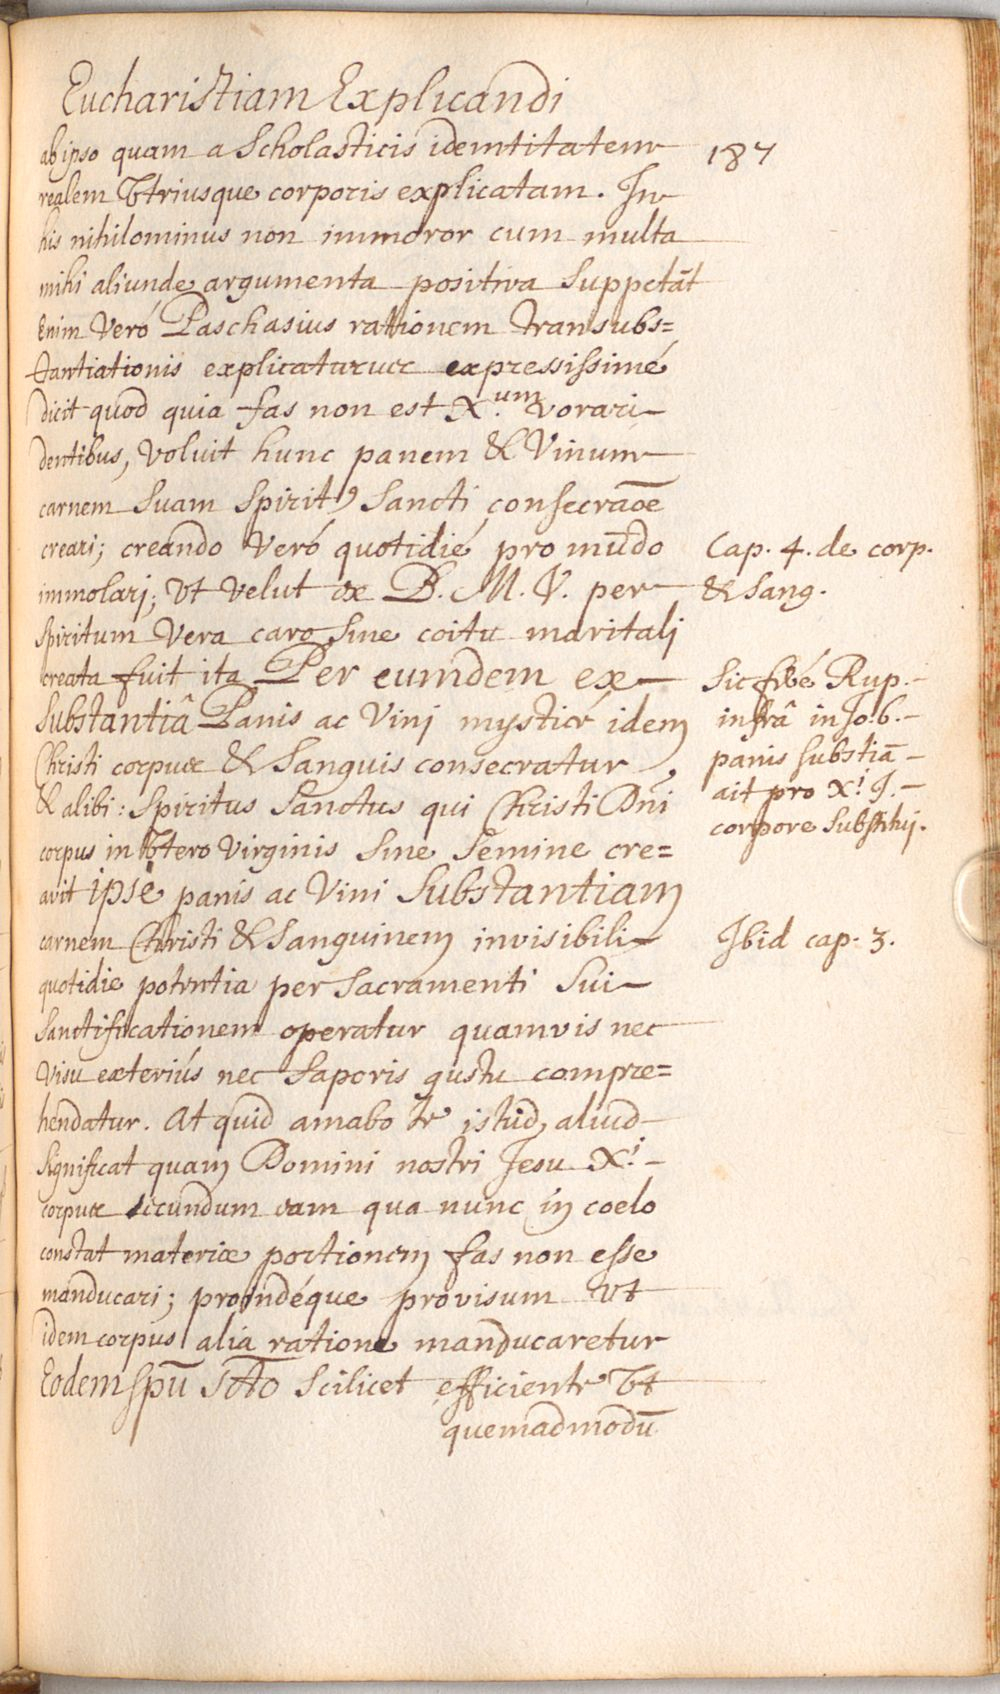 Eucharistiam Explicandi
187
ab ipso quam a Scholasticis identitatem
realem Utriusque corporis explicatam. In
his nihilominus non immoror cum multa
mihi aliunde argumenta positiva Suppetāt
Enim Veró Paschasius rationem transubs=
tantiationis explicaturus expressissimé
dicit quod quia fas non est X.um vorari
dentibus, voluit hunc panem & Vinum
carnem Suam Spirit9 Sancti consecraōe
creari; creando Veró quotidié pro mūdo
immolari; Ut velut ex B. M. V. per
Spiritum Vera caro Sine coitu maritali
creata fuit ita Per eumdem ex
Substantiâ Panis ac Vini mysticé idem
Christi corpus & Sanguis consecratur,
& alibi: Spiritus Sanctus qui Christi Dn̄i
corpus in Utero Virginis Sine Semine cre=
avit ipse panis ac Vini Substantiam
carnem Christi & Sanguinem invisibili
quotidie potentia per Sacramenti Sui
Sanctificationem operatur quamvis nec
Visu exteriús nec Saporis gustu compre=
hendatur. At quid amabo te istud aliud
Significat quam Domini nostri Jesu X.i
corpus secundum eam qua nunc in coelo
constat materiæ portionem fas non esse
manducari; proindéque provisum Ut
idem corpus alia ratione manducaretur
Eodem Spū Sc̄to Scilicet efficiente Ut
quemadmodū
Cap. 4. de corp.
& Sang.
Sic Rup.
infrâ in Jo. 6.
panis substiā
ait pro X.i J.
corpore Substitui.
Ibid cap. 3.